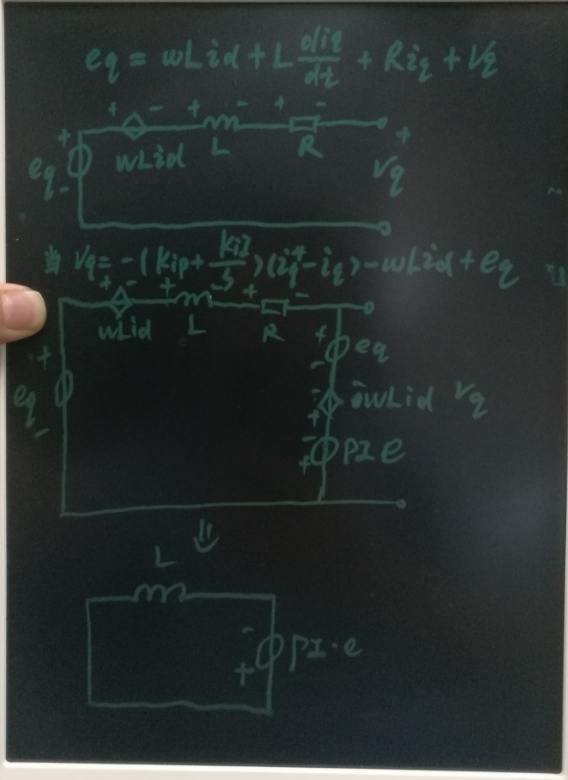 eq = wLid + L diq/dt + Riq + Vq
+ - + - + -
+ eq - wLid L R + Vq
当 Vq = -(Kip + KiI/S)(iq* - iq) - wLid + eq
+ - + - + -
wLid L R
+ eq - + eq -
- wLid + Vq
- PI e +
⇓
L
- PI·e +